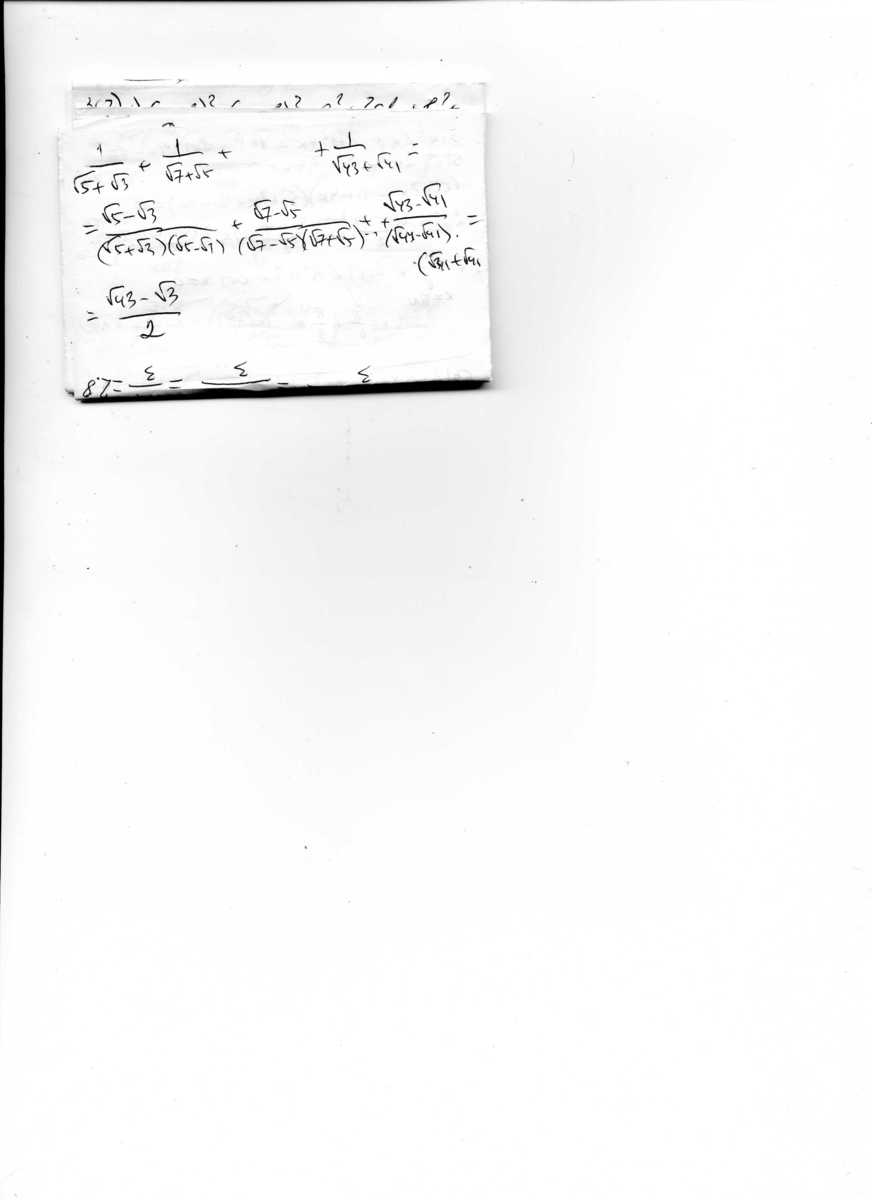 1/(√5+√3) + 1/(√7+√5) + + 1/(√43+√41) =
= (√5-√3)/((√5+√3)(√5-√3)) + (√7-√5)/((√7-√5)(√7+√5)) + .. + (√43-√41)/((√43-√41)· ·(√41+√41 =
= (√43-√3)/2